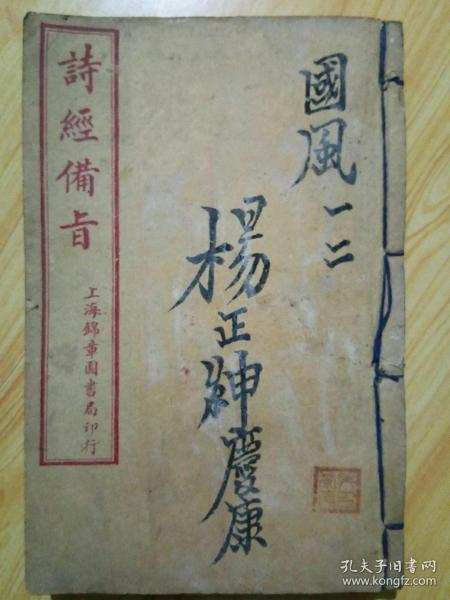 國風 一 二
楊正紳慶康
詩經備旨
上海錦章圖書局印行
孔夫子旧书网
www.kongfz.com